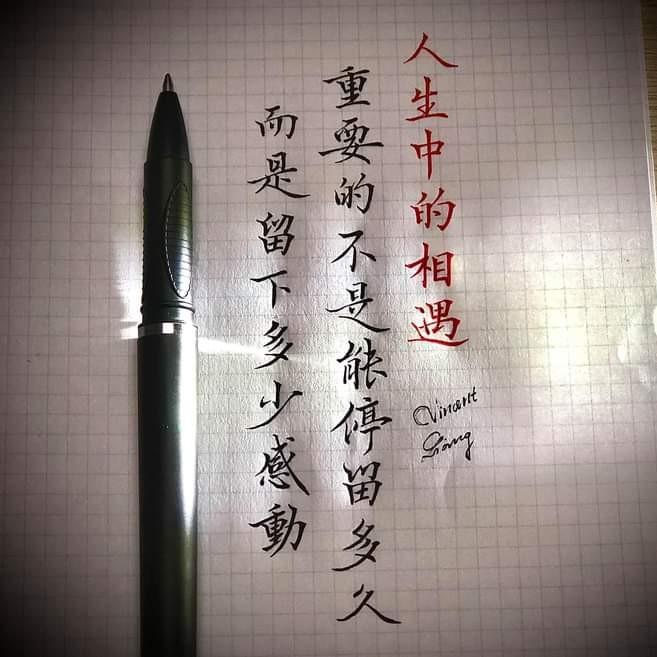 人生中的相遇
重要的不是能停留多久
而是留下多少感動
Vincent
Liang